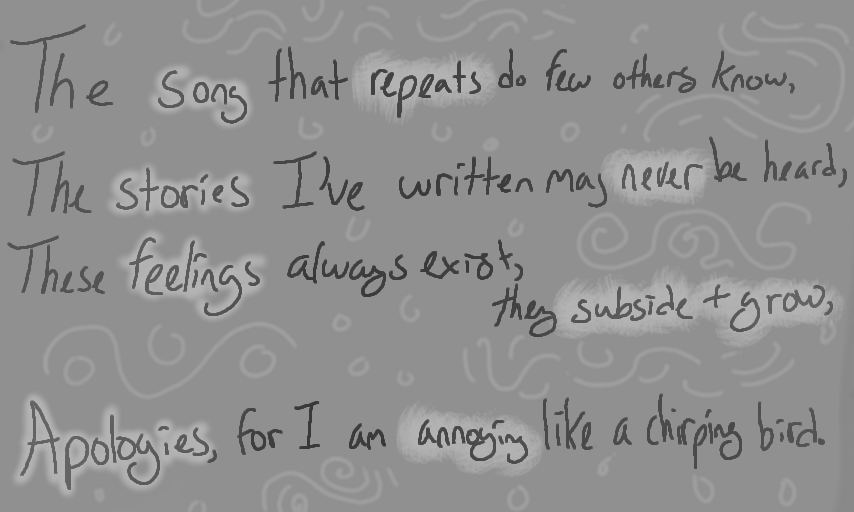 The song that repeats do few others know,
The stories I've written may never be heard,
These feelings always exist,
they subside + grow,
Apologies, for I am annoying like a chirping bird.